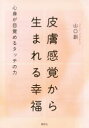 山口創
皮膚感覚から
生まれる幸福
心身が目覚めるタッチの力
春秋社